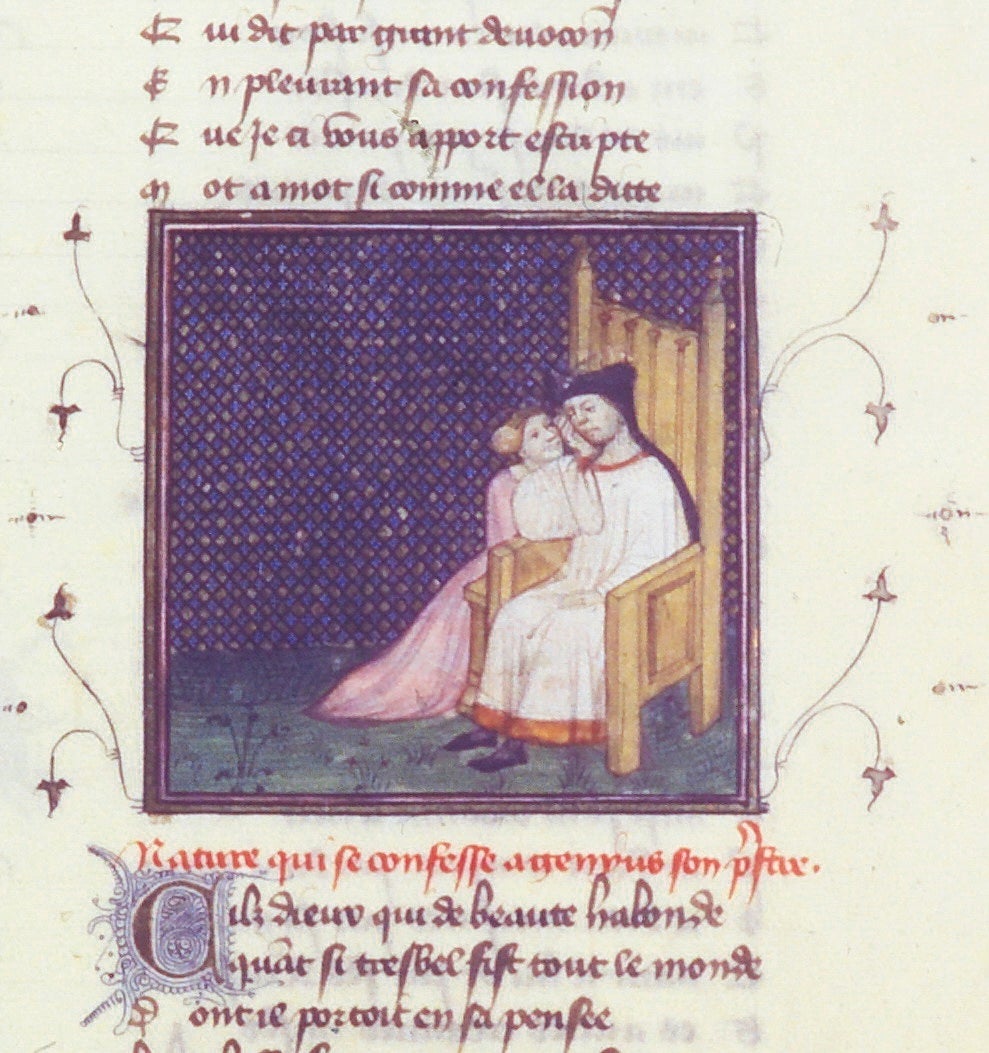 Q ui dit par grant deuocon
E n plourant sa confession
Q ue Je ci vous apport escripte
M ot a mot si comme el la ditte
Nature qui se confesse a genyus son pstre.
Cilz dieux qui de beaute habonde
quāt si tresbel fist tout le monde
D ont il portoit en sa pensee